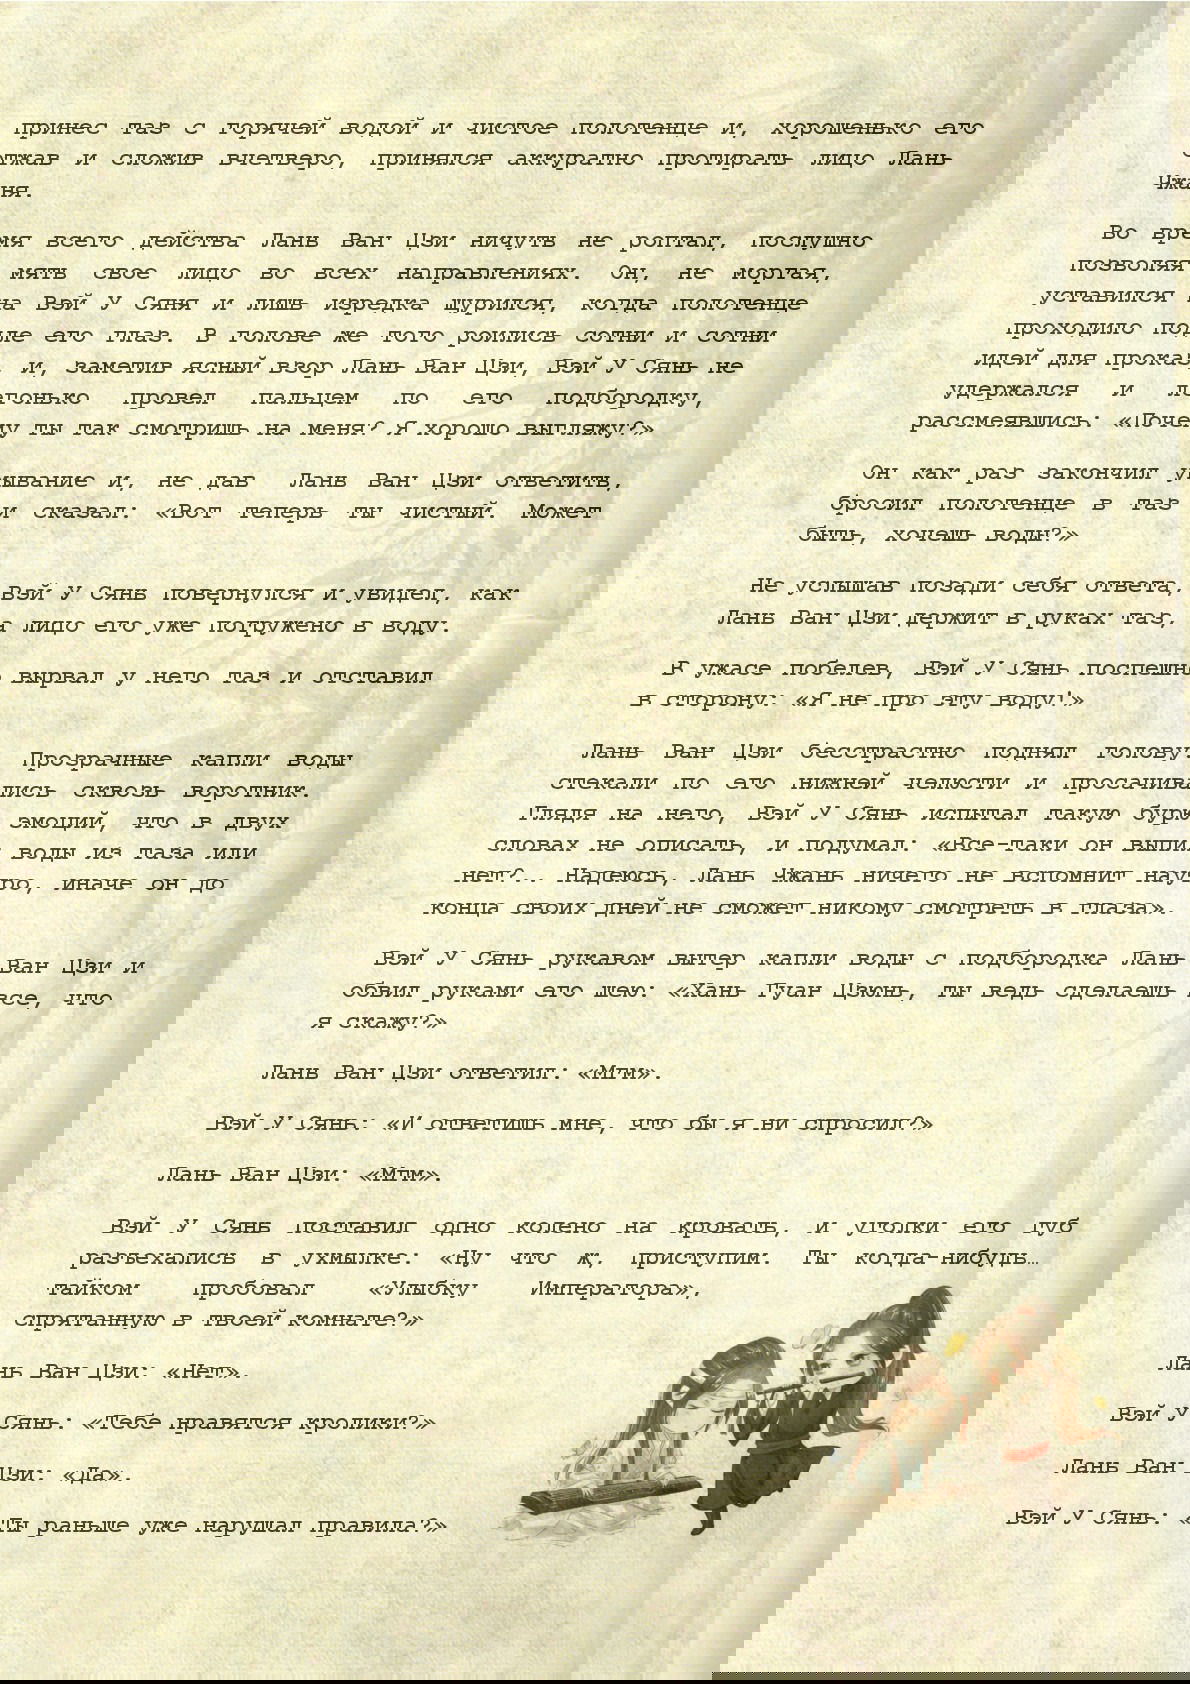 принес таз с горячей водой и чистое полотенце и, хорошенько его
отжав и сложив вчетверо, принялся аккуратно протирать лицо Лань
Чжаня.
Во время всего действа Лань Ван Цзи ничуть не роптал, послушно
позволяя мять свое лицо во всех направлениях. Он, не моргая,
уставился на Вэй У Сяня и лишь изредка щурился, когда полотенце
проходило подле его глаз. В голове же того роились сотни и сотни
идей для проказ, и, заметив ясный взор Лань Ван Цзи, Вэй У Сянь не
удержался и легонько провел пальцем по его подбородку,
рассмеявшись: «Почему ты так смотришь на меня? Я хорошо выгляжу?»
Он как раз закончил умывание и, не дав Лань Ван Цзи ответить,
бросил полотенце в таз и сказал: «Вот теперь ты чистый. Может
быть, хочешь воды?»
Не услышав позади себя ответа, Вэй У Сянь повернулся и увидел, как
Лань Ван Цзи держит в руках таз, а лицо его уже погружено в воду.
В ужасе побелев, Вэй У Сянь поспешно вырвал у него таз и отставил
в сторону: «Я не про эту воду!»
Лань Ван Цзи бесстрастно поднял голову. Прозрачные капли воды
стекали по его нижней челюсти и просачивались сквозь воротник.
Глядя на него, Вэй У Сянь испытал такую бурю эмоций, что в двух
словах не описать, и подумал: «Все-таки он выпил воды из таза или
нет?.. Надеюсь, Лань Чжань ничего не вспомнит наутро, иначе он до
конца своих дней не сможет никому смотреть в глаза».
Вэй У Сянь рукавом вытер капли воды с подбородка Лань Ван Цзи и
обвил руками его шею: «Хань Гуан Цзюнь, ты ведь сделаешь все, что
я скажу?»
Лань Ван Цзи ответил: «Мгм».
Вэй У Сянь: «И ответишь мне, что бы я ни спросил?»
Лань Ван Цзи: «Мгм».
Вэй У Сянь поставил одно колено на кровать, и уголки его губ
разъехались в ухмылке: «Ну что ж, приступим. Ты когда-нибудь…
тайком пробовал «Улыбку Императора»,
спрятанную в твоей комнате?»
Лань Ван Цзи: «Нет».
Вэй У Сянь: «Тебе нравятся кролики?»
Лань Ван Цзи: «Да».
Вэй У Сянь: «Ты раньше уже нарушал правила?»